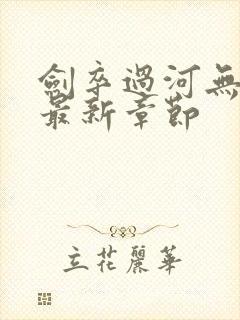 劍卒過河無
最新章節
立花麗華